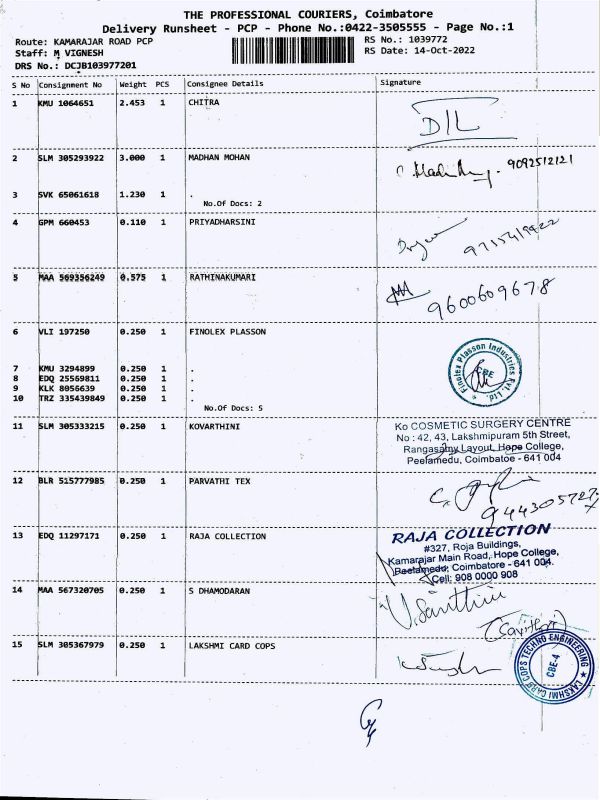 THE PROFESSIONAL COURIERS, Coimbatore
Delivery Runsheet - PCP - Phone No.:0422-3505555 - Page No.:1
Route: KAMARAJAR ROAD PCP
Staff: M VIGNESH
DRS No.: DCJB103977201
RS No.: 1039772
RS Date: 14-Oct-2022
S No Consignment No Weight PCS Consignee Details Signature
1 KMU 1064651 2.453 1 CHITRA
D/L
2 SLM 305293922 3.000 1 MADHAN MOHAN
9092512121
3 SVK 65061618 1.230 1 .
No.Of Docs: 2
4 GPM 660453 0.110 1 PRIYADHARSINI
5 MAA 569356249 0.575 1 RATHINAKUMARI
9600609678
6 VLI 197250 0.250 1 FINOLEX PLASSON
Finolex Plasson Industries Pvt. Ltd.
CBE
7 KMU 3294899 0.250 1 .
8 EDQ 25569811 0.250 1 .
9 KLK 8056639 0.250 1 .
10 TRZ 335439849 0.250 1 .
No.Of Docs: 5
11 SLM 305333215 0.250 1 KOVARTHINI
Ko COSMETIC SURGERY CENTRE
No : 42, 43, Lakshmipuram 5th Street,
Rangasamy Layout, Hope College,
Peelamedu, Coimbatoe - 641 004
12 BLR 515777985 0.250 1 PARVATHI TEX
13 EDQ 11297171 0.250 1 RAJA COLLECTION
RAJA COLLECTION
#327, Roja Buildings,
Kamarajar Main Road, Hope College,
Peelamedu, Coimbatore - 641 004.
Cell: 908 0000 908
14 MAA 567320705 0.250 1 S DHAMODARAN
V. Santhini
15 SLM 305367979 0.250 1 LAKSHMI CARD COPS
LAKSHMI CARD COPS TECHNO ENGINEERING
CBE-4